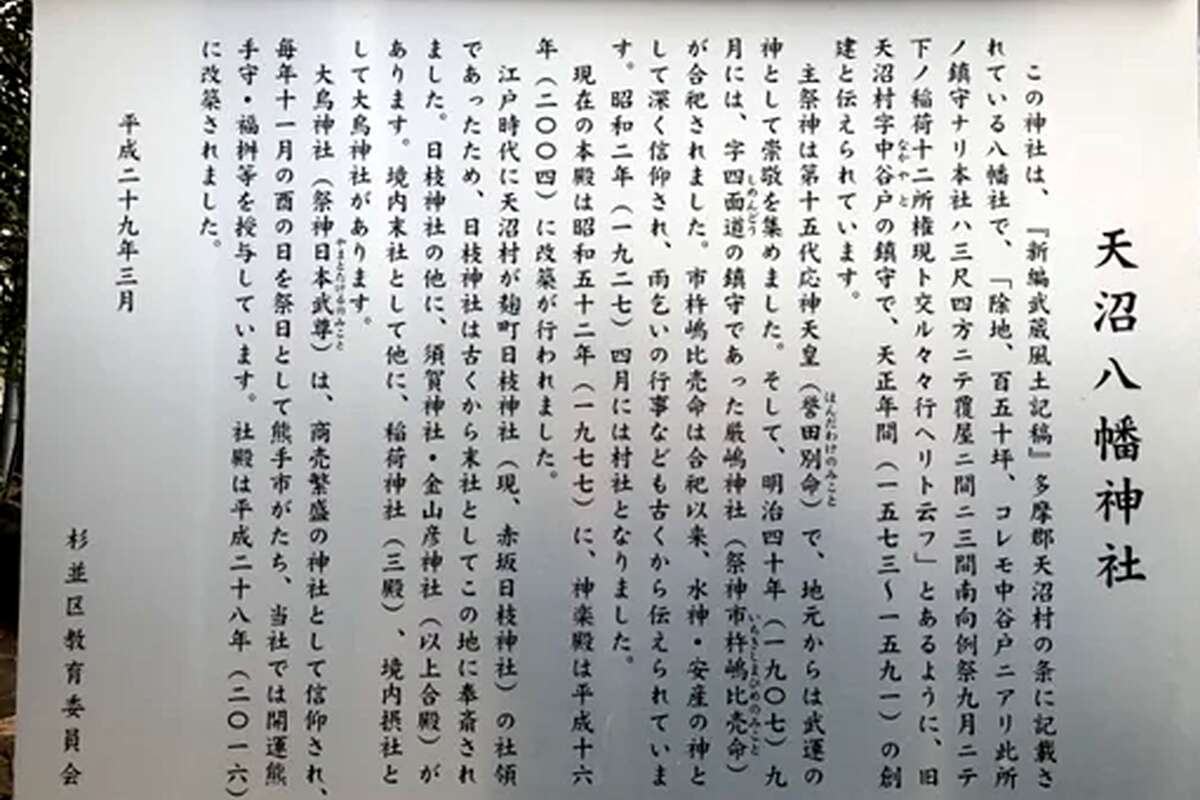 天沼八幡神社
この神社は、『新編武蔵風土記稿』多摩郡天沼村の条に記載さ
れている八幡社で、「除地、百五十坪、コレモ中谷戸ニアリ此所
ノ鎮守ナリ本社ハ三尺四方ニテ覆屋二間ニ三間南向例祭九月ニテ
下ノ稲荷十二所権現ト交ル々々行ヘリト云フ」とあるように、旧
天沼村字中谷戸の鎮守で、天正年間(一五七三〜一五九一)の創
建と伝えられています。
主祭神は第十五代応神天皇(誉田別命)で、地元からは武運の
神として崇敬を集めました。そして、明治四十年(一九〇七)九
月には、字四面道の鎮守であった厳嶋神社(祭神市杵嶋比売命)
が合祀されました。市杵嶋比売命は合祀以来、水神・安産の神と
して深く信仰され、雨乞いの行事なども古くから伝えられていま
す。昭和二年(一九二七)四月には村社となりました。
現在の本殿は昭和五十二年(一九七七)に、神楽殿は平成十六
年(二〇〇四)に改築が行われました。
江戸時代に天沼村が麹町日枝神社(現、赤坂日枝神社)の社領
であったため、日枝神社は古くから末社としてこの地に奉斎され
ました。日枝神社の他に、須賀神社・金山彦神社(以上合殿)が
あります。境内末社として他に、稲荷神社(三殿)、境内摂社と
して大鳥神社があります。
大鳥神社(祭神日本武尊)は、商売繁盛の神社として信仰され、
毎年十一月の酉の日を祭日として熊手市がたち、当社では開運熊
手守・福桝等を授与しています。社殿は平成二十八年(二〇一六)
に改築されました。
平成二十九年三月
杉並区教育委員会